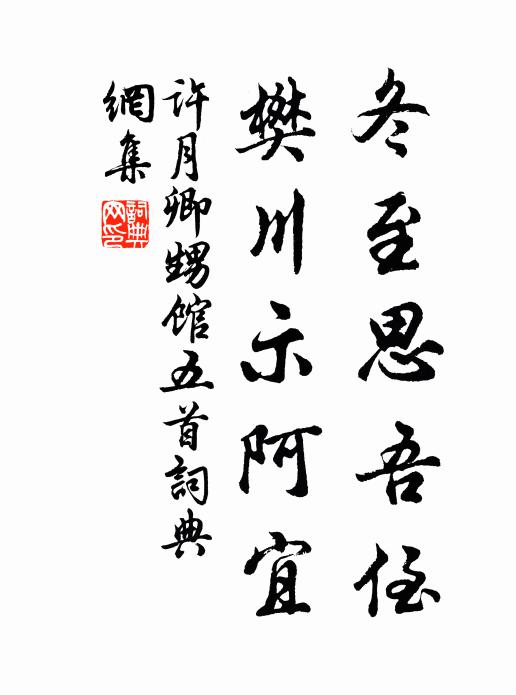 冬至思吾侄
樊川示阿宜
许月卿甥馆五首詞典
網集
詞典網印